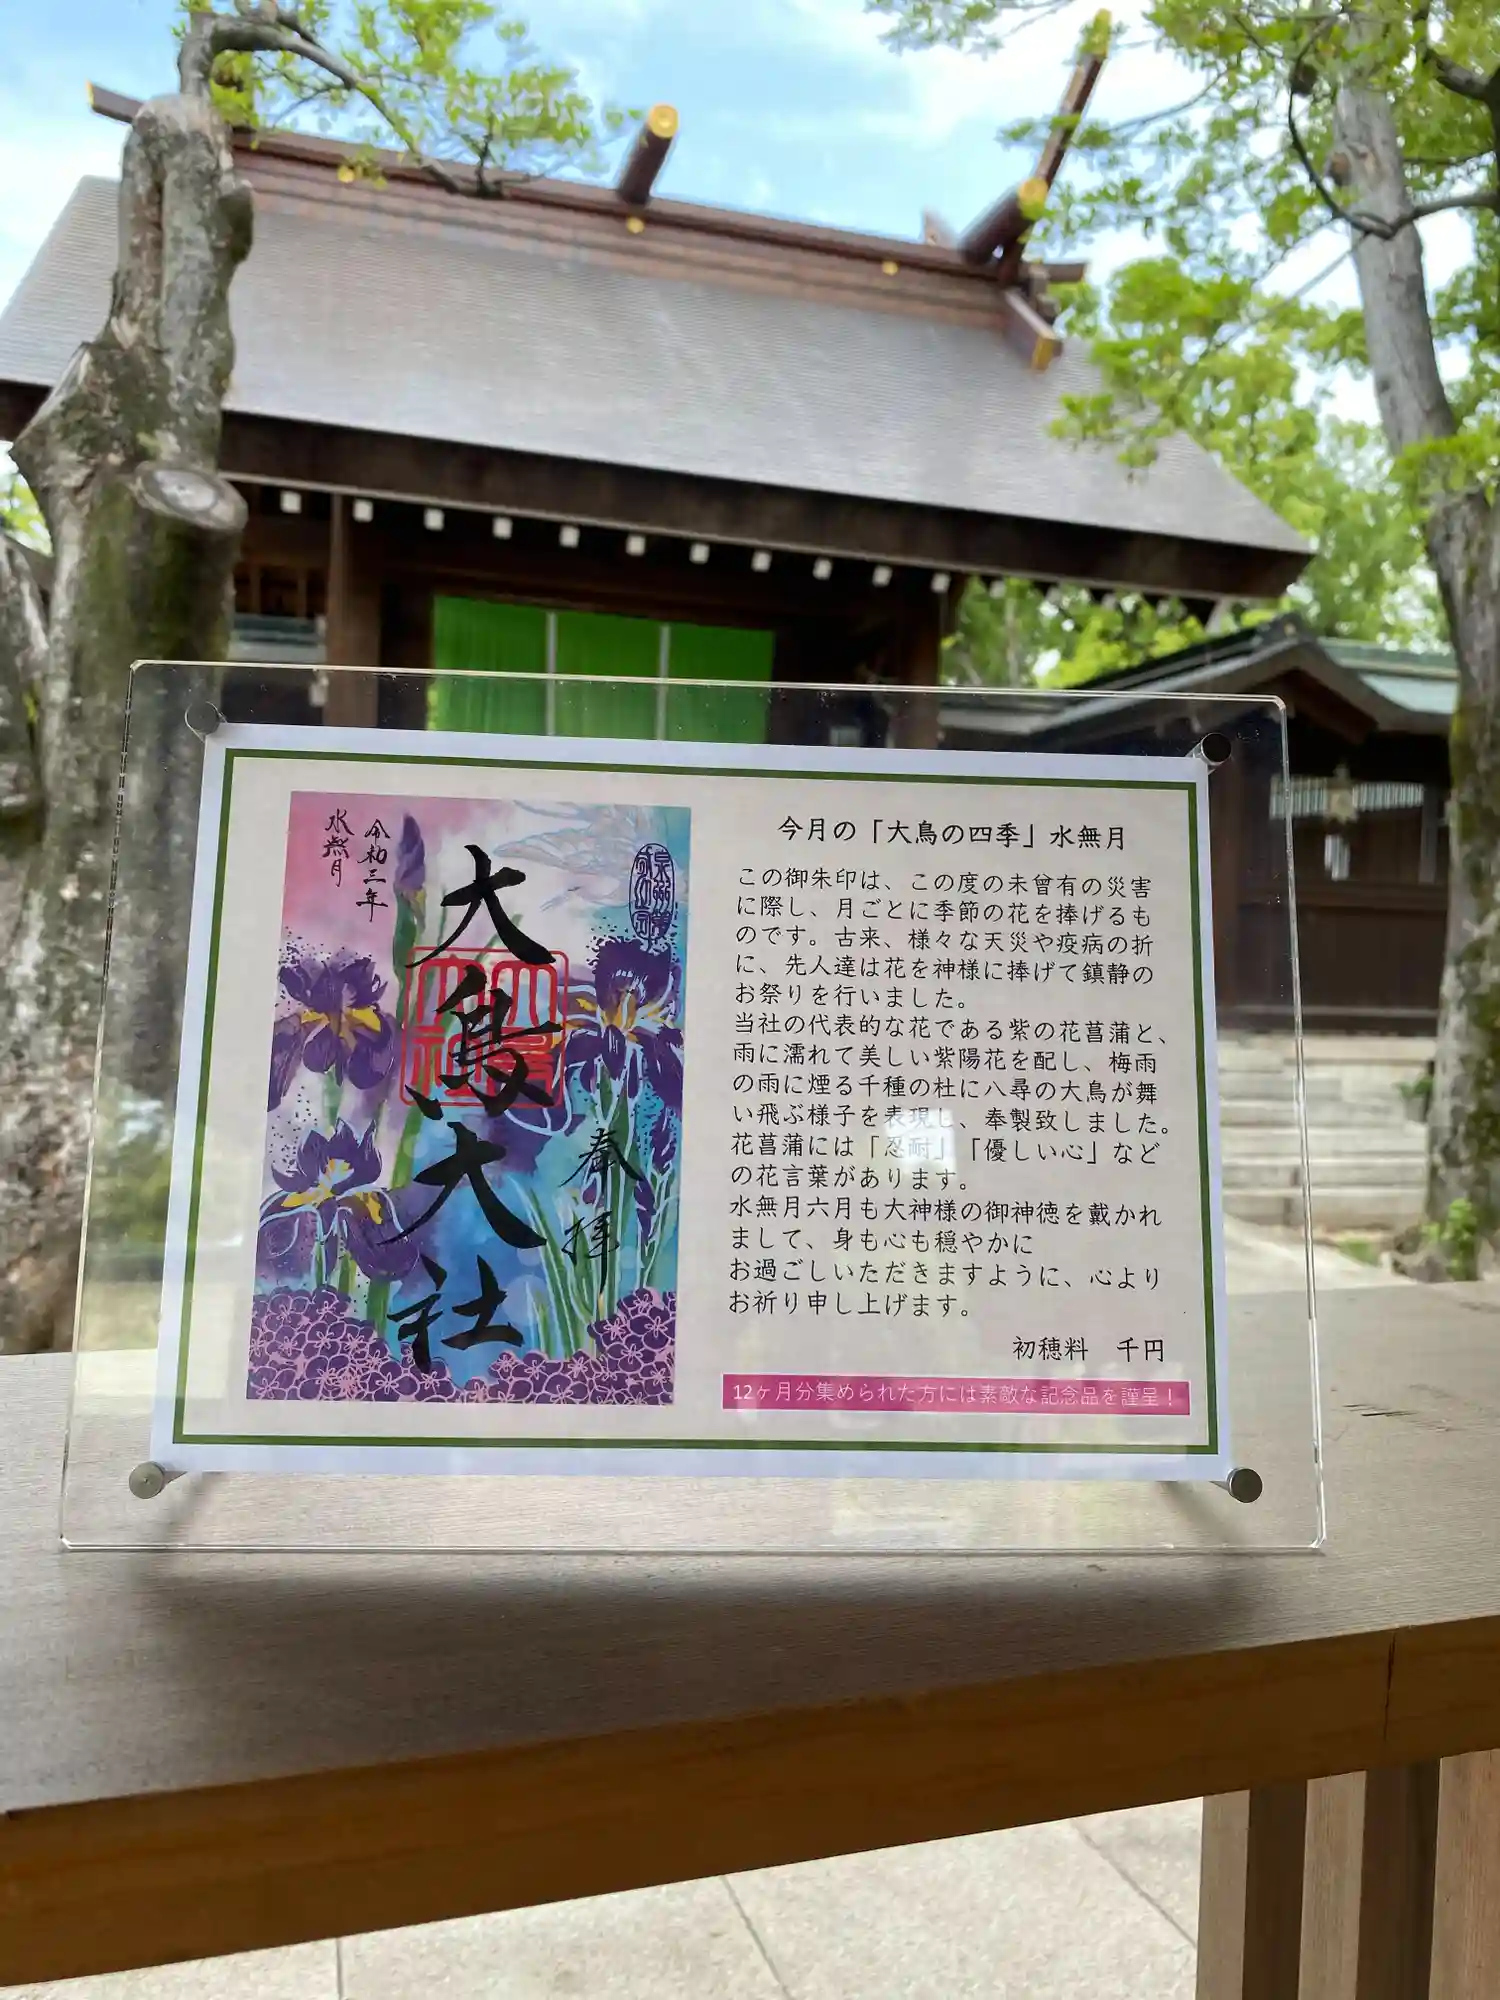 令和三年
水無月
大鳥大社
奉拝
今月の「大鳥の四季」水無月
この御朱印は、この度の未曾有の災害
に際し、月ごとに季節の花を捧げるも
のです。古来、様々な天災や疫病の折
に、先人達は花を神様に捧げて鎮静の
お祭りを行いました。
当社の代表的な花である紫の花菖蒲と、
雨に濡れて美しい紫陽花を配し、梅雨
の雨に煙る千種の杜に八尋の大鳥が舞
い飛ぶ様子を表現し、奉製致しました。
花菖蒲には「忍耐」「優しい心」など
の花言葉があります。
水無月六月も大神様の御神徳を戴かれ
まして、身も心も穏やかに
お過ごしいただきますように、心より
お祈り申し上げます。
初穂料 千円
12ヶ月分集められた方には素敵な記念品を謹呈！